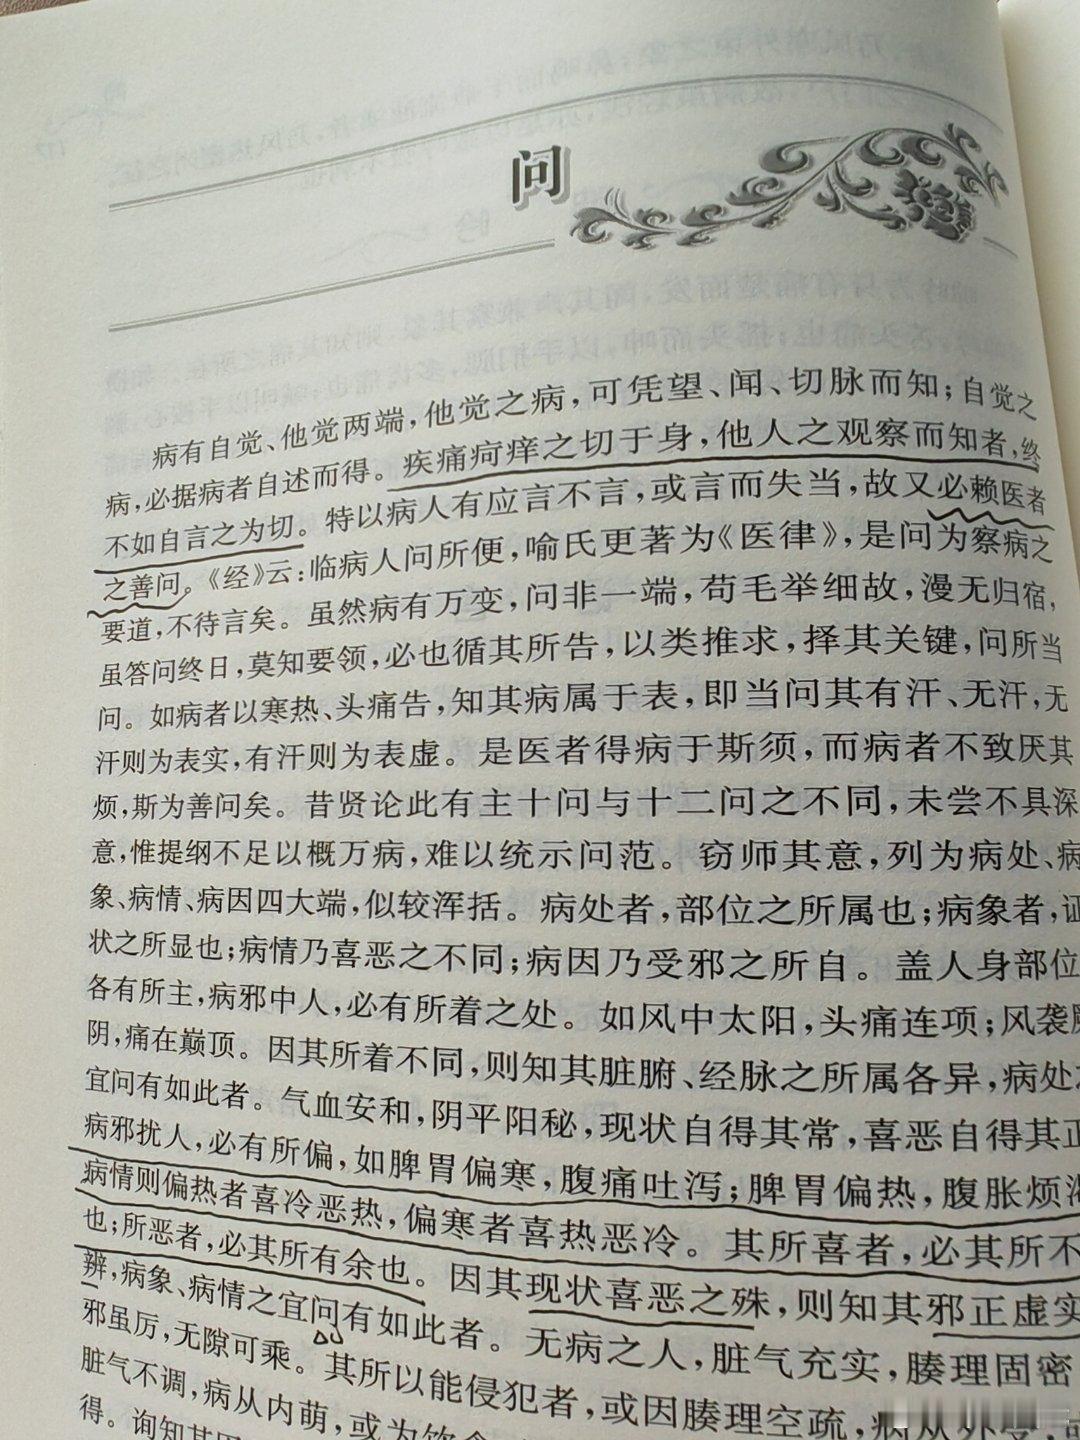 问
病有自觉、他觉两端，他觉之病，可凭望、闻、切脉而知；自觉之
病，必据病者自述而得。疾痛疴痒之切于身，他人之观察而知者，终
不如自言之为切。特以病人有应言不言，或言而失当，故又必赖医者
之善问。《经》云：临病人问所便，喻氏更著为《医律》，是问为察病之
要道，不待言矣。虽然病有万变，问非一端，苟毛举细故，漫无归宿，
虽答问终日，莫知要领，必也循其所告，以类推求，择其关键，问所当
问。如病者以寒热、头痛告，知其病属于表，即当问其有汗、无汗，无
汗则为表实，有汗则为表虚。是医者得病于斯须，而病者不致厌其
烦，斯为善问矣。昔贤论此有主十问与十二问之不同，未尝不具深
意，惟提纲不足以概万病，难以统示问范。窃师其意，列为病处、病
象、病情、病因四大端，似较浑括。病处者，部位之所属也；病象者，证
状之所显也；病情乃喜恶之不同；病因乃受邪之所自。盖人身部位
各有所主，病邪中人，必有所着之处。如风中太阳，头痛连项；风袭
阴，痛在巅顶。因其所着不同，则知其脏腑、经脉之所属各异，病处
宜问有如此者。气血安和，阴平阳秘，现状自得其常，喜恶自得其正
病邪扰人，必有所偏，如脾胃偏寒，腹痛吐泻；脾胃偏热，腹胀烦
病情则偏热者喜冷恶热，偏寒者喜热恶冷。其所喜者，必其所不
也；所恶者，必其所有余也。因其现状喜恶之殊，则知其邪正虚实
辨，病象、病情之宜问有如此者。无病之人，脏气充实，腠理固密
邪虽厉，无隙可乘。其所以能侵犯者，或因腠理空疏，病从外受，
脏气不调，病从内萌，或为饮食
得。询知其因